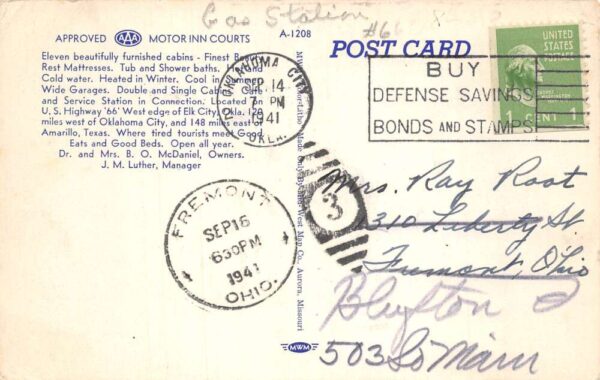 Gas Station
#66
APPROVED AAA MOTOR INN COURTS
Eleven beautifully furnished cabins - Finest Beauty
Rest Mattresses. Tub and Shower baths. Hot and
Cold water. Heated in Winter. Cool in Summer.
Wide Garages. Double and Single Cabins. Cafe
and Service Station in Connection. Located on
U. S. Highway '66' West edge of Elk City, Okla. 120
miles west of Oklahoma City, and 148 miles east of
Amarillo, Texas. Where tired tourists meet Good
Eats and Good Beds. Open all year.
Dr. and Mrs. B. O. McDaniel, Owners.
J. M. Luther, Manager
A-1208
POST CARD
OKLAHOMA CITY
SEP 14
7 PM
1941
OKLA.
BUY
DEFENSE SAVINGS
BONDS AND STAMPS
UNITED
STATES
POSTAGE
1 CENT 1
West Map Co., Aurora, Missouri
MWM
FREMONT
SEP 16
630PM
1941
OHIO.
3
Mrs. Ray Root
1310 Liberty St
Fremont, Ohio
Bluffton O
503 So Main